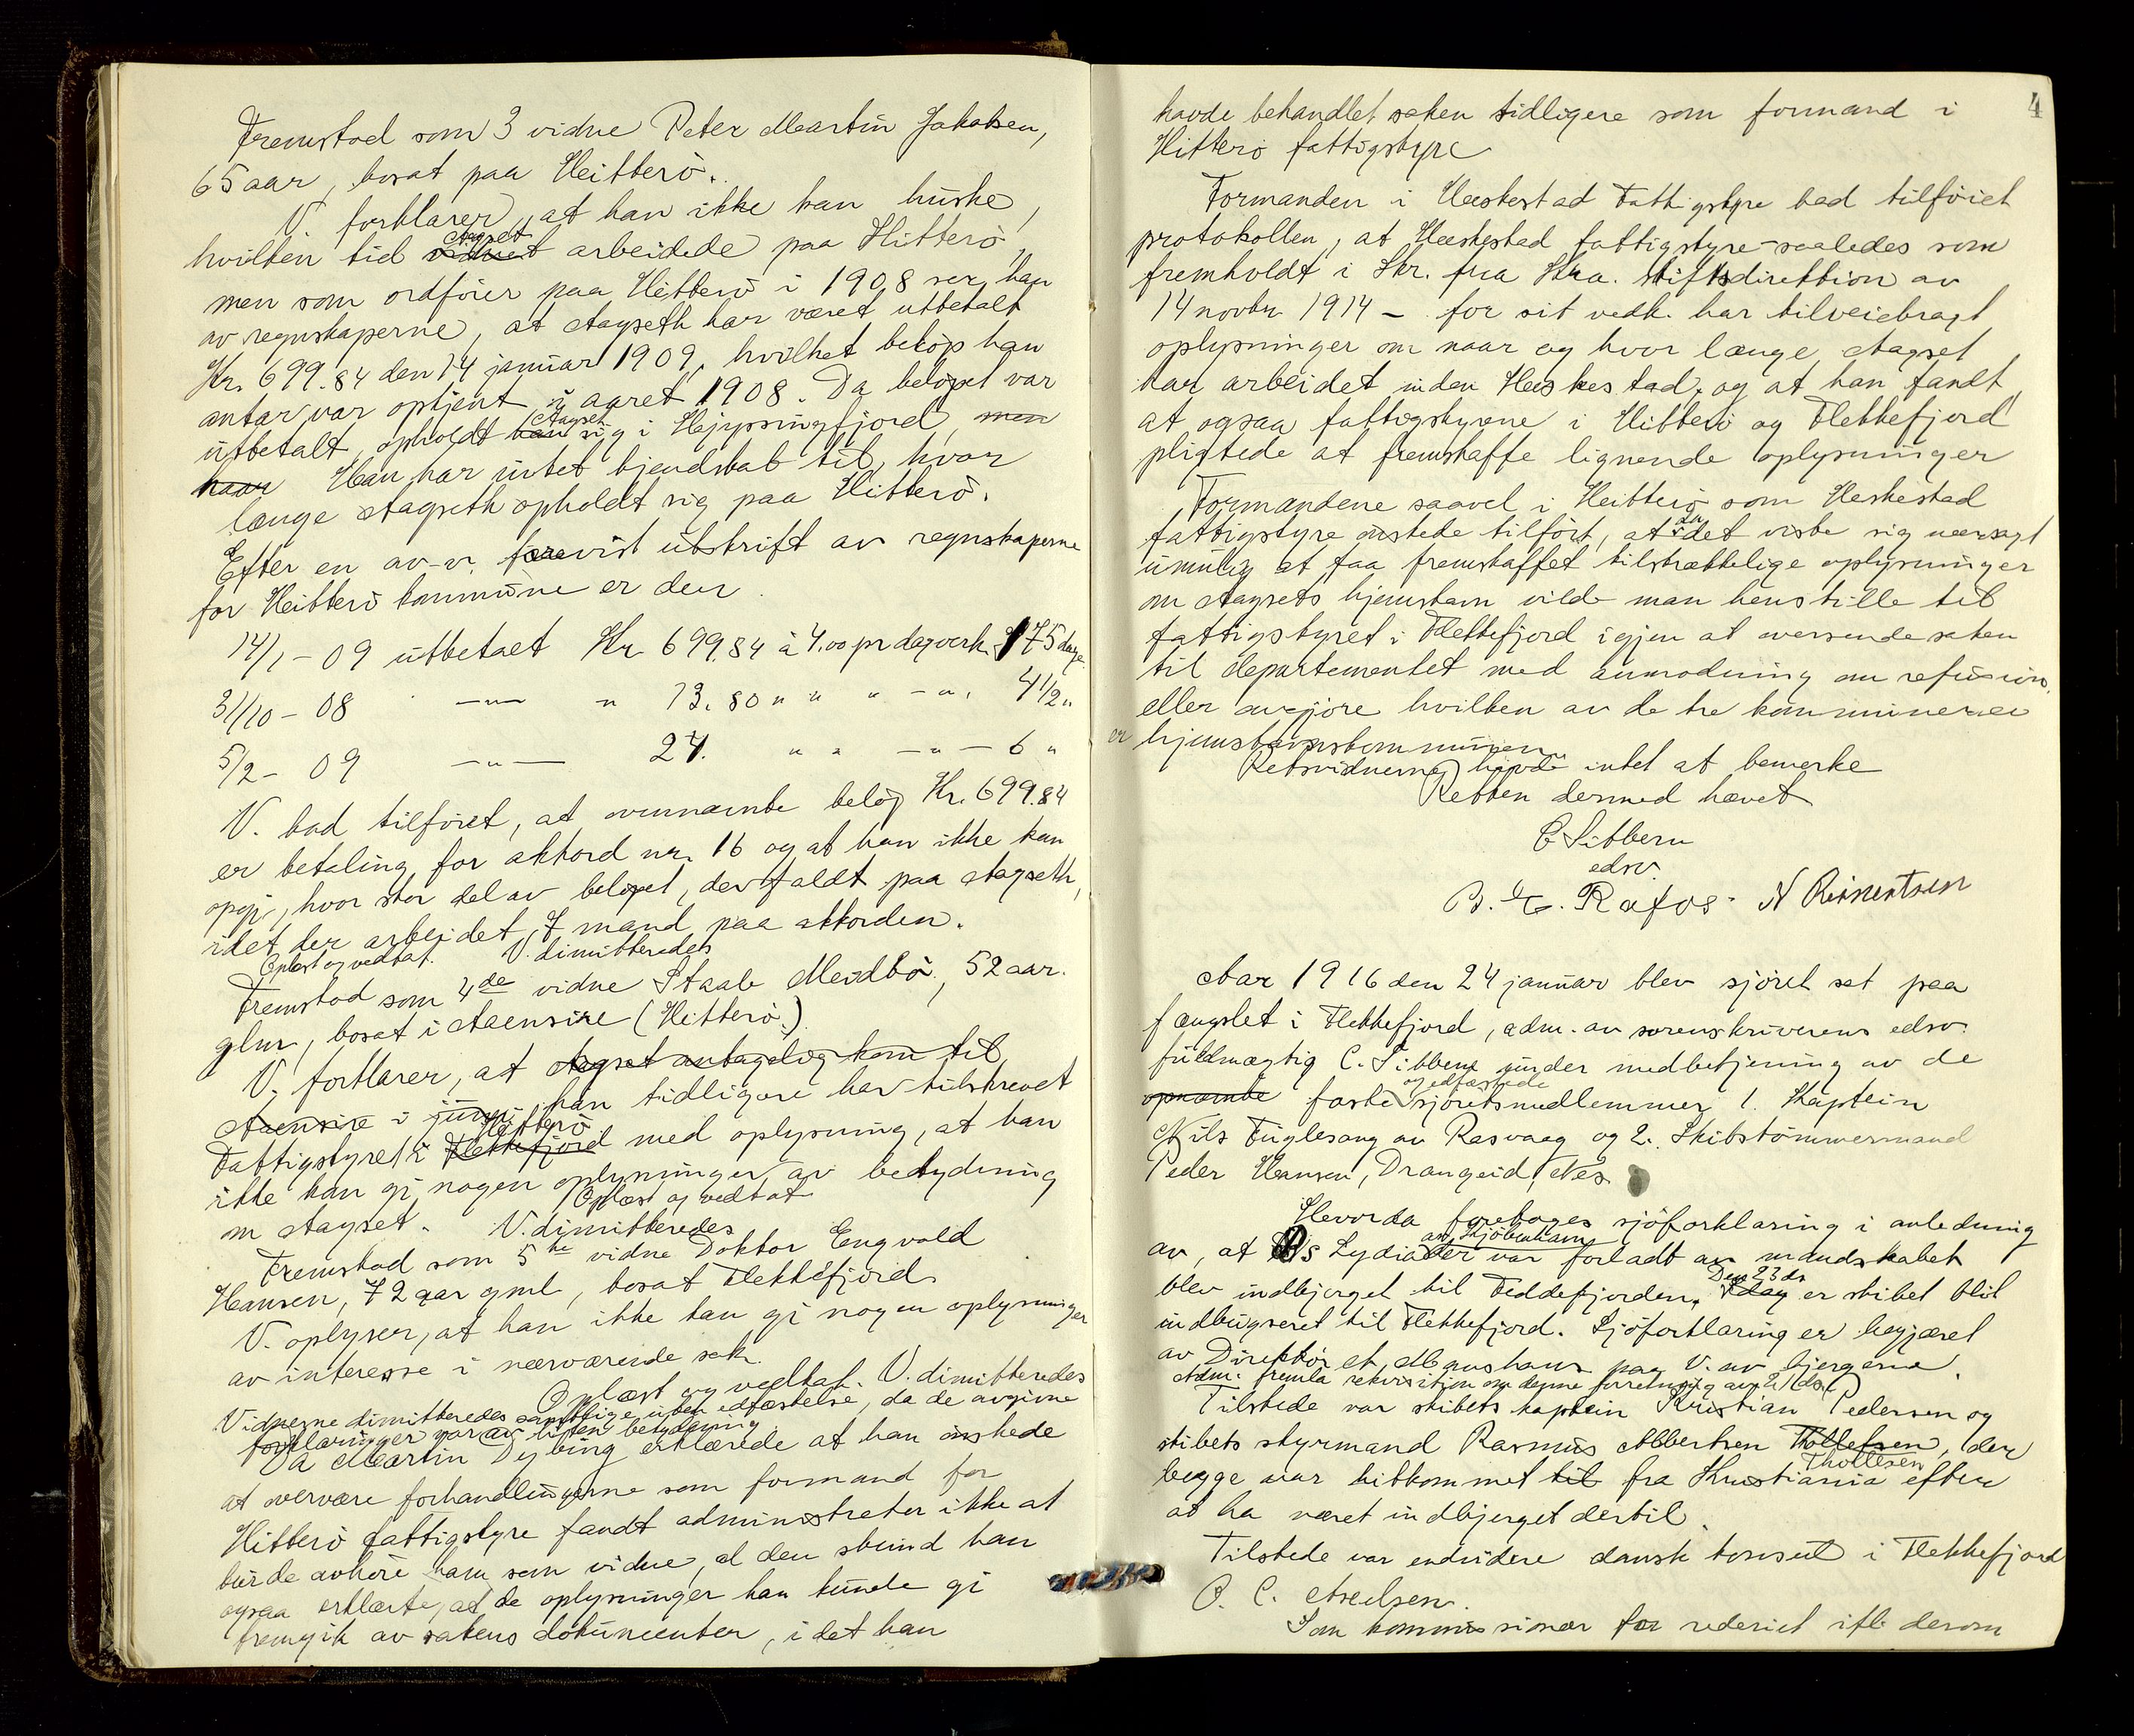 Fremstod som 3 vidne Peter Martin Jakobsen,
65 aar, bosat paa Hitterö.
V. forklarer, at han ikke kan huske,
hvilken tid Aagset arbeidede paa Hitterö,
men som ordförer paa Hitterö i 1908 ser han
av regnskaperne, at Aagseth har været utbetalt
Kr. 699.84 den 14 januar 1909, hvilket belöp han
antar var optjent i aaret 1908. Da belöpet var
utbetalt, opholdt Aagset sig i Hjysingfjord, men
naar Han har intet kjendskab til, hvor
længe Aagseth opholdt sig paa Hitterö.
Efter en av v. forevist utskrift av regnskaperne
for Hitterö kommune er der
14/1 - 09 utbetalt Kr 699.84 à 4.00 pr dagverk 175 dage
31/10 - 08 -"- " 13.80 " " " -"- 4 1/2 "
5/2 - 09 -"- 24. " " -"- 6 "
V. bad tilföiet, at ovennævnte belöp Kr. 699.84
er betaling for akkord nr. 16 og at han ikke kan
opgi, hvor stor del av belöpet, der faldt paa Aagseth,
idet der arbeidet 7 mand paa akkorden.
Oplæst og vedtat. V. dimitteredes
Fremstod som 4de vidne Staale Meidbö, 52 aar
glm, bosat i Aaensire (Hitterö).
V. forklarer, at Aagset antagelig kom til
Aaensire i juni, han tidligere har tilskrevet
Fattigstyret i Hitterö Flekkefjord med oplysning, at han
ikke kan gi nogen oplysninger av betydning
om Aagset. Oplæst og vedtat
V. dimitteredes
Fremstod som 5te vidne Doktor Engvald
Hansen, 72 aar gml, bosat Flekkefjord
V. oplyser, at han ikke kan gi nogen oplysninger
av interesse i nærværende sak.
Oplæst og vedtat. V. dimitteredes
Vidnerne dimitteredes samtlige uten edfæstelse, da de avgivne
forklaringer var av liten betydning
Da Martin Dybing erklærede at han önskede
at overvære forhandlingerne som formand for
Hitterö fattigstyre fandt administrator ikke at
burde avhöre ham som vidne, al den stund han
ogsaa erklærte, at de oplysninger han kunde gi
fremgik av sakens dokumenter, idet han
4
havde behandlet saken tidligere som formand i
Hitterö fattigstyre
Formanden i Heskestad Fattigstyre bad tilföiet
protokollen, at Heskestad fattigstyre - saaledes som
fremholdt i Skr. fra Kra. stiftsdirektion av
14 novbr. 1914 - for sit vedk. har tilveiebragt
oplysninger om naar og hvor længe Aagset
har arbeidet inden Heskestad, og at han fandt,
at ogsaa fattigstyrene i Hitterö og Flekkefjord
pligtede at fremskaffe lignende oplysninger
Formandene saavel i Hitterö som Heskestad
fattigstyre önskede tilfört, at da det viste sig nærsagt
umulig at faa fremskaffet tilstrækkelige oplysninger
om Aagsets hjemstavn vilde man henstille til
fattigstyret i Flekkefjord igjen at oversende saken
til departementet med anmodning om refusion,
eller avgjöre hvilken av de tre kommuner
er hjemstavnskommunen
Retsvidnerne havde intet at bemerke
Retten dermed hævet
C Sibbern
edsv.
B. E. Rafos. N Reinertsen
Aar 1916 den 24 januar blev sjöret sat paa
fængslet i Flekkefjord, adm. av sorenskriverens edsv.
fuldmægtig C. Sibbern under medbetjening av de
opnævnte faste og edfæstede sjöretsmedlemmer 1. Kaptein
Nils Fuglesang av Rasvaag og 2. Skibstömmermand
Peder Hansen, Drangeid, Nes
Hvorda foretoges sjöforklaring i anledning
av, at Ds Lydia av Kjöbenham der var forladt av mandskabet
blev indbjerget til Feddefjorden. Den 23 ds Idag er skibet blit
indbugseret til Flekkefjord. Sjöforklaring er begjæret
av Direktör et Magnshaus paa V. av bjergerne.
Adm. fremla rekvisition om denne forretning av 21 ds.
Tilstede var skibets kaptein Kristian Pedersen og
skibets styrmand Rasmus Albertsen Thollefsen, der
Thollesen
begge var hitkommet til fra Kristiania efter
at ha været indbjerget dertil.
Tilstede var endvidere dansk konsul i Flekkefjord
P. C. Axelsen.
Som kommissionær for rederiet ifl. derom